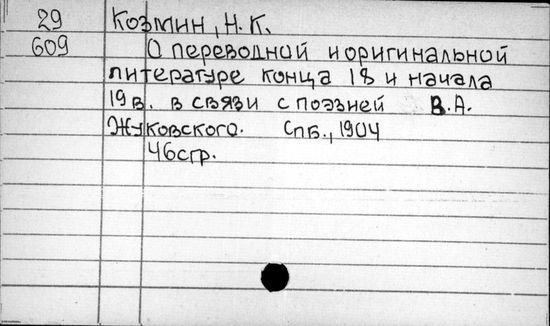 29 Козмин, Н.К.
609 О переводной и оригинальной
литературе конца 18 и начала
19 в. в связи с поэзией В.А.
Жуковского. Спб., 1904
46стр.